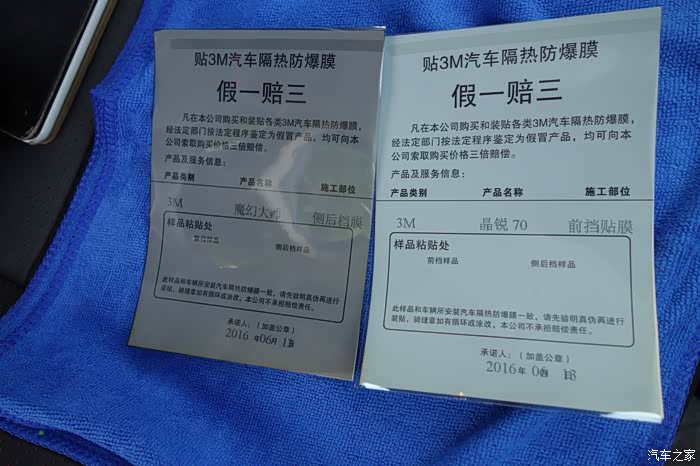 贴3M汽车隔热防爆膜
假一赔三
凡在本公司购买和装贴各类3M汽车隔热防爆膜,
经法定部门按法定程序鉴定为假冒产品，均可向本
公司索取购买价格三倍赔偿。
产品及服务信息：
产品类别 产品名称 施工部位
3M 魔幻大师 侧后档膜
样品粘贴处
前档样品 侧后档样品
此样品和车辆所安装汽车隔热防爆膜一致，请先验明真伪再进行
装贴，骑缝章如有循环或涂改，本公司不承担赔偿责任。
承诺人：(加盖公章)
2016 年06月 13日
贴3M汽车隔热防爆膜
假一赔三
凡在本公司购买和装贴各类3M汽车隔热防爆膜,
经法定部门按法定程序鉴定为假冒产品，均可向本
公司索取购买价格三倍赔偿。
产品及服务信息：
产品类别 产品名称 施工部位
3M 晶锐 70 前挡贴膜
样品粘贴处
前档样品 侧后档样品
此样品和车辆所安装汽车隔热防爆膜一致，请先验明真伪再进行
装贴，骑缝章如有循环或涂改，本公司不承担赔偿责任。
承诺人：(加盖公章)
2016 年06月 13日
汽车之家